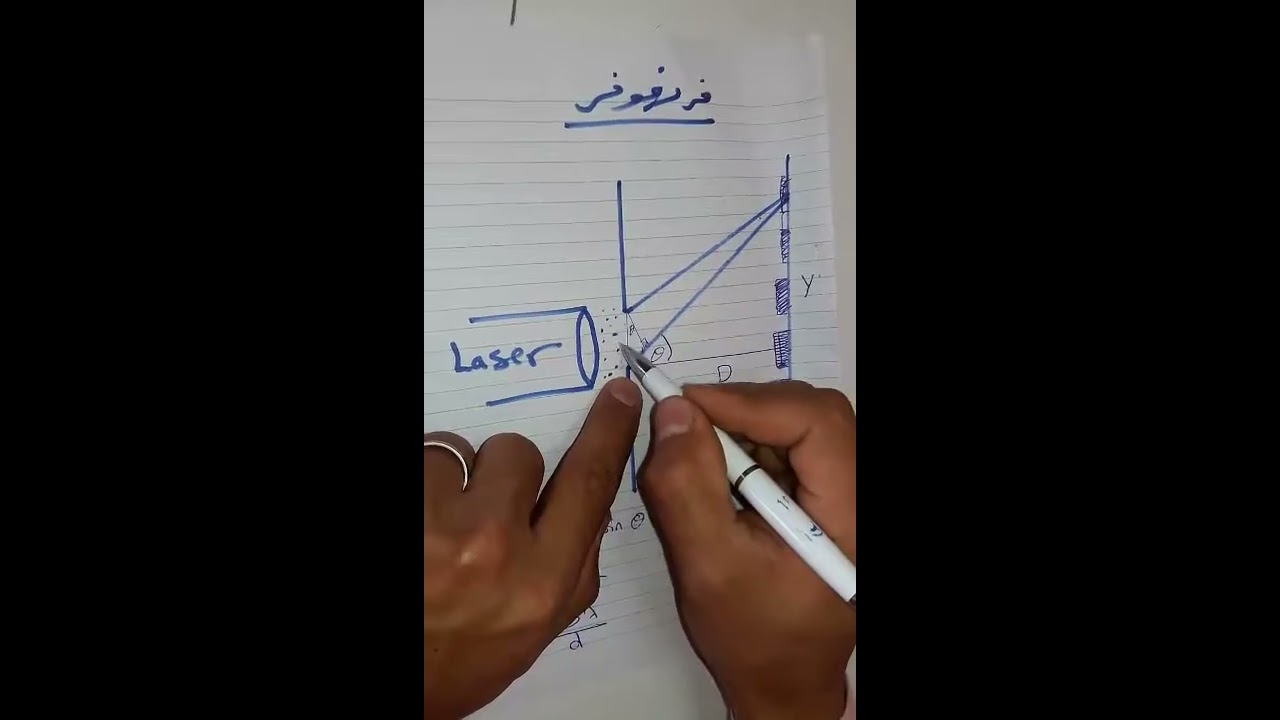 فرنهوفر
Laser
θ
D
Y'
sin θ
d